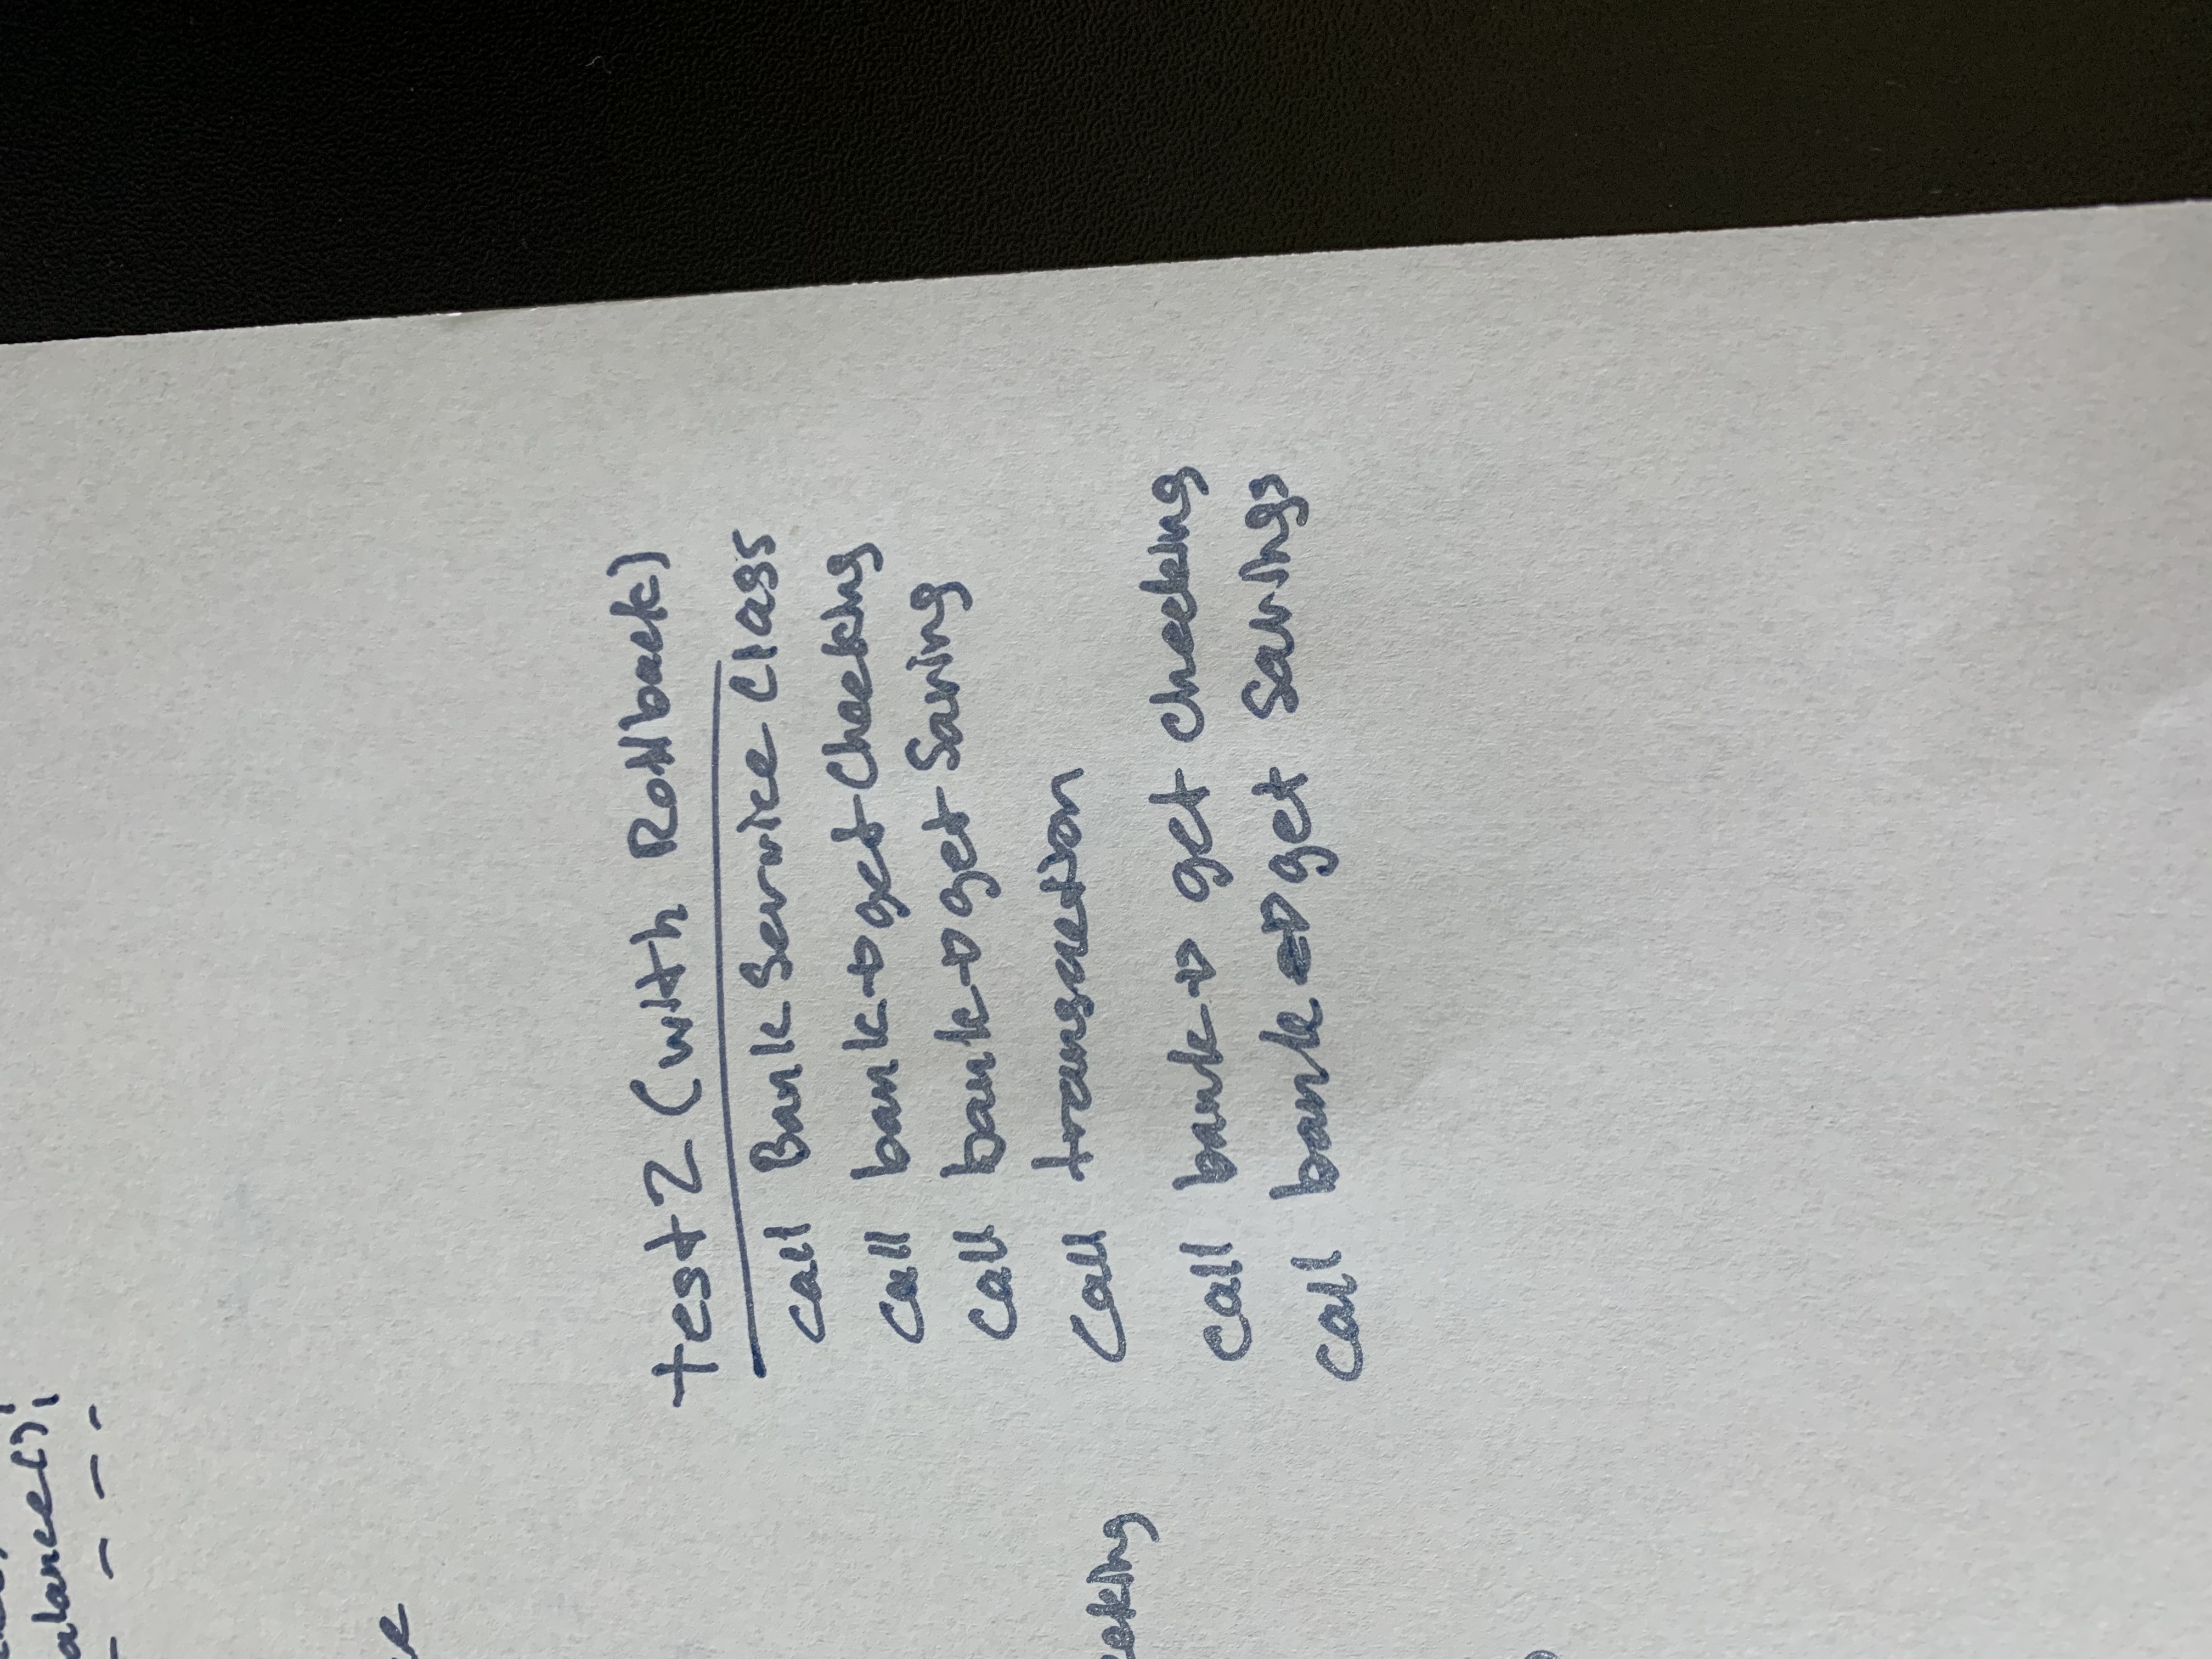 alance();
test2 (with Rollback)
call BankService Class
call bank→getChecking
call bank→get Saving
call transaction
eking
call bank→ get checking
call bank→get Savings